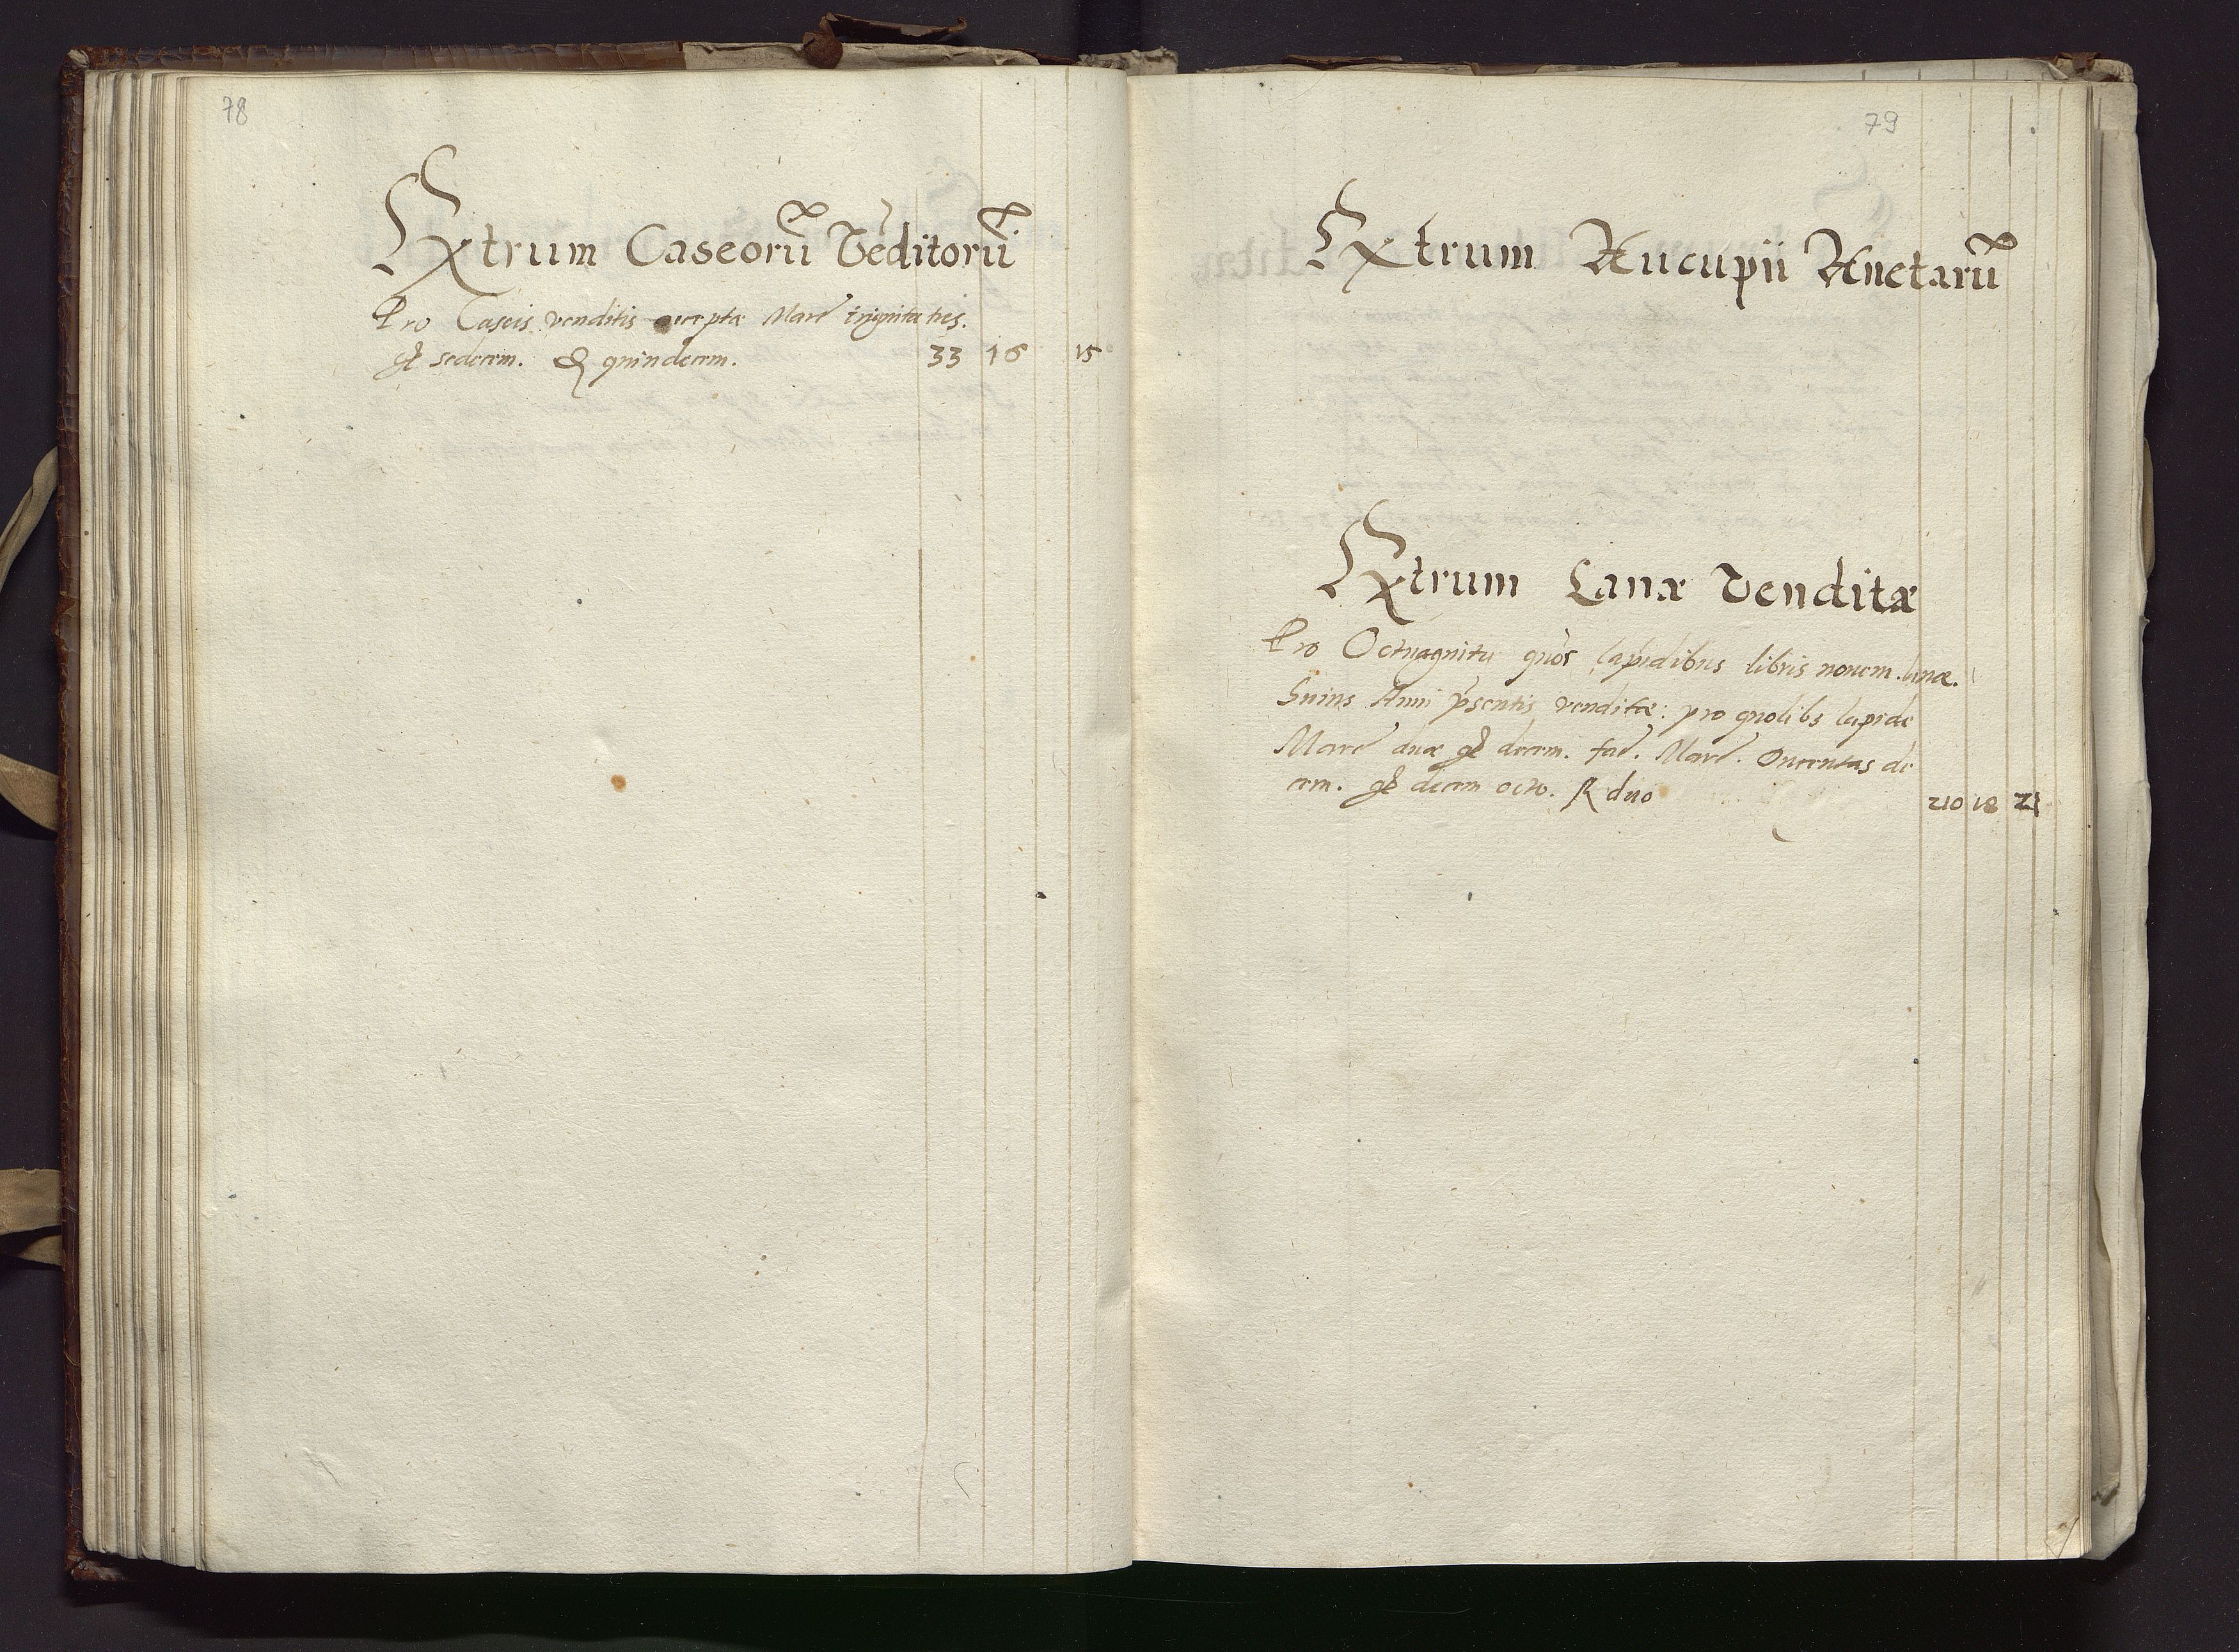 78
Extrum Caseorũ Vẽditorũ
Pro Caseis venditis acceptæ Marc̃ triginta tres.
gͬ sedecim. ₰ quindecim. 33 16 15
79
Extrum Aucupii Anetarũ
Extrum Lanæ Venditæ
Pro Octuaginta quõr lapidibus libris novem. lanæ.
huius Anni p̃sentis venditæ: pro quolibs lapide
Marc̃ duæ gͬ decem. fac̃. Marc̃. Ducentas de
cem. gͬ decem octo. duo 210 18